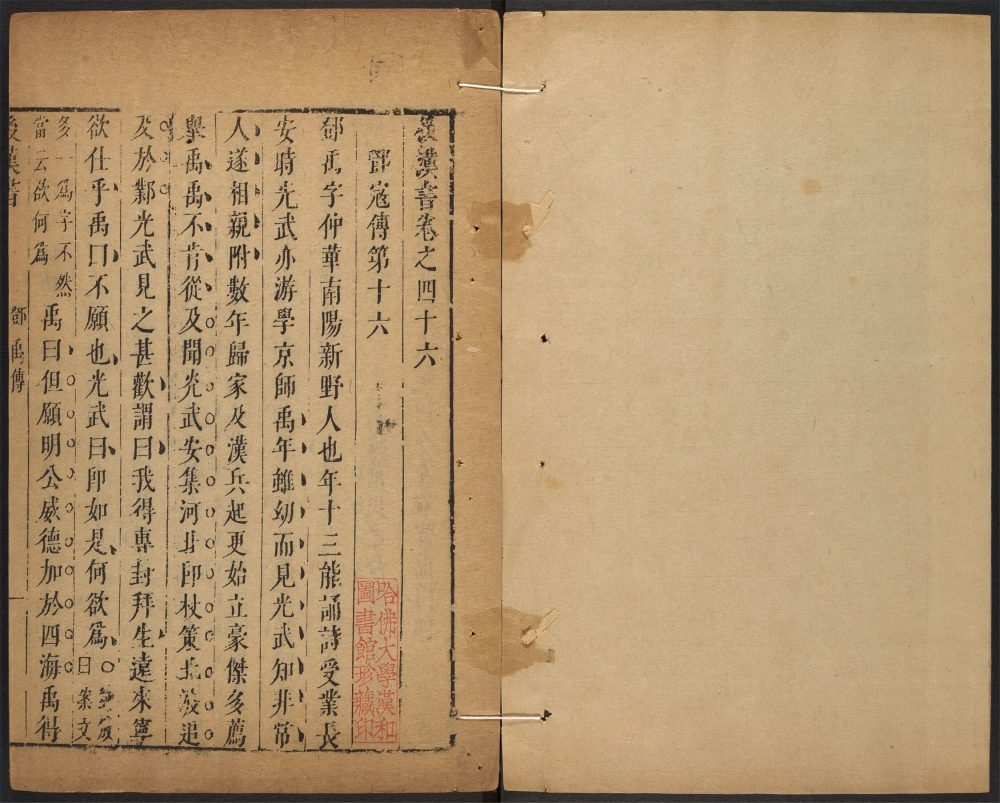 後漢書卷之四十六
鄧寇傳第十六
鄧禹字仲華南陽新野人也年十三能誦詩受業長
安時光武亦游學京師禹年雖幼而見光武知非常
人遂相親附數年歸家及漢兵起更始立豪傑多薦
舉禹禹不肯從及聞光武安集河北卽杖策北渡追
及於鄴光武見之甚歡謂曰我得專封拜生遠來寧
欲仕乎禹曰不願也光武曰卽如是何欲爲
曰案文
多一爲字不然
當云欲何爲
禹曰但願明公威德加於四海禹得
後漢書
鄧禹傳
一
哈佛大學漢和
圖書館珍藏印